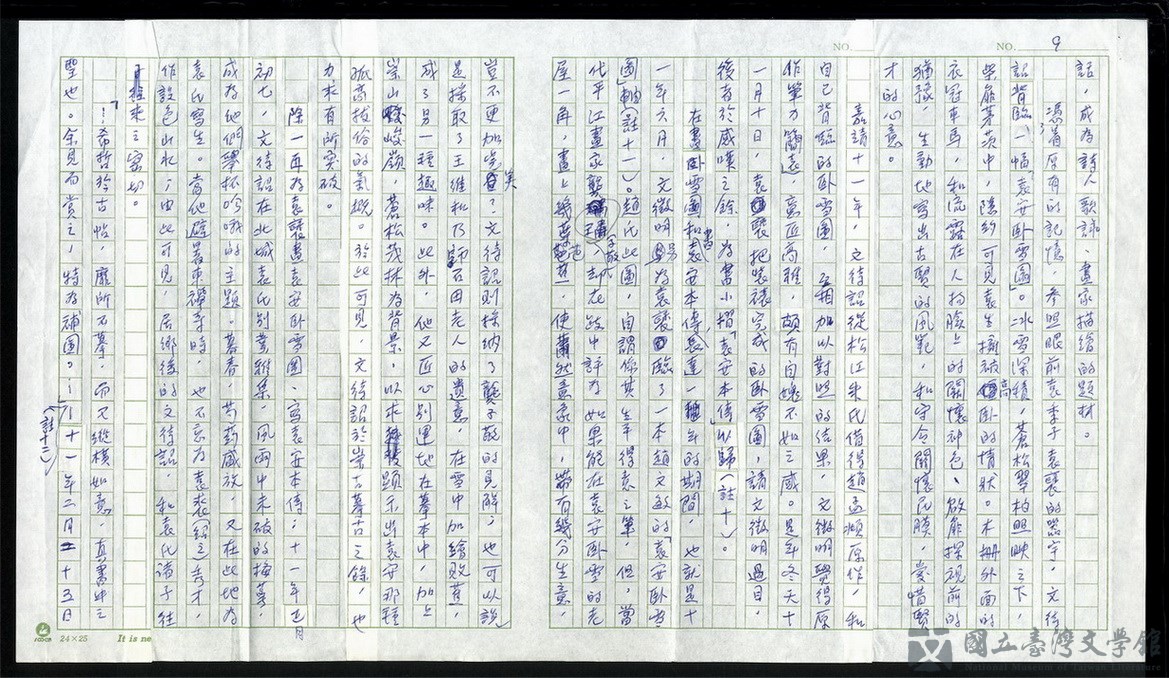 NO.
NO. 9
話，成為詩人歌詠、畫家描繪的題材。
憑着原有的記憶，參照眼前袁季子袁褧的器宇，文待
詔背臨一幅「袁安卧雪圖」。冰雪深積，蒼松翠柏照映之下，
柴扉茅茨中，隱約可見袁生擁被高卧的情狀。木柵外面的
衣冠車馬，和流露在人物臉上的關懷神色、欲能探視前的
猶豫，生動地寫出古賢的風範，和守令關懷民膜，愛惜賢
才的心意。
嘉靖十一年，文待詔從松江朱氏借得趙孟頫原作，和
自己背臨的卧雪圖，互相加以對照的結果，文徵明覺得原
作筆力簡遠，高延高雅，頗有自愧不如之感。是年冬天十
一月十日，袁褧把裝裱完成的卧雪圖，請文徵明過目，
後者於感嘆之餘，為書小楷「袁安本傳」以歸（註十）。
在畫卧雪圖和書袁安本傳，長達一年的期間，也就是十
一年六月，文徵明另為袁褧臨了一本趙文敏的「袁安卧雪
圖」軸（註十一）。趙氏此圖，自謂係其生平得意之筆，但，當
代平江畫家龔璛子敬，却在跋中評為如果能在袁安卧雪的老
屋一角，畫上幾葉芭蕉，使蕭然意象中，帶有幾分生意，
豈不更加完美？文待詔則採納了龔子敬的見解；也可以說
是採取了王維和乃師石田老人的遺意，在雪中加繪敗蕉，
成了另一種趣味。此外，他又匠心別運地在摹本中，加上
崇山峻嶺，蒼松茂林為背景，以求顯示出袁安那種
孤高拔俗的氣概。於此可見，文待詔於崇古摹古之餘，也
力求有所突破。
除一再為袁褧畫袁安卧雪圖、寫袁安本傳；十一年正月
初七，文待詔在北城袁氏別業雅集，風雨中未破的梅萼，
成為他們舉杯吟哦的主題。暮春，芍葯盛放，又在此地為
袁氏寫生。當他避暑東禪寺時，也不忘為袁裘（紹之）秀才，
作設色山水；由此可見，居鄉後的文待詔，和袁氏諸子往
來之密切。
「…希哲於古帖，靡所不摹，而又縱橫如意，真書中之
聖也。余見而賞之，特為補圖。……十一年二月二十五日
（註十二）
24×25
It is ne
國立臺灣文學館
National Museum of Taiwan Literature